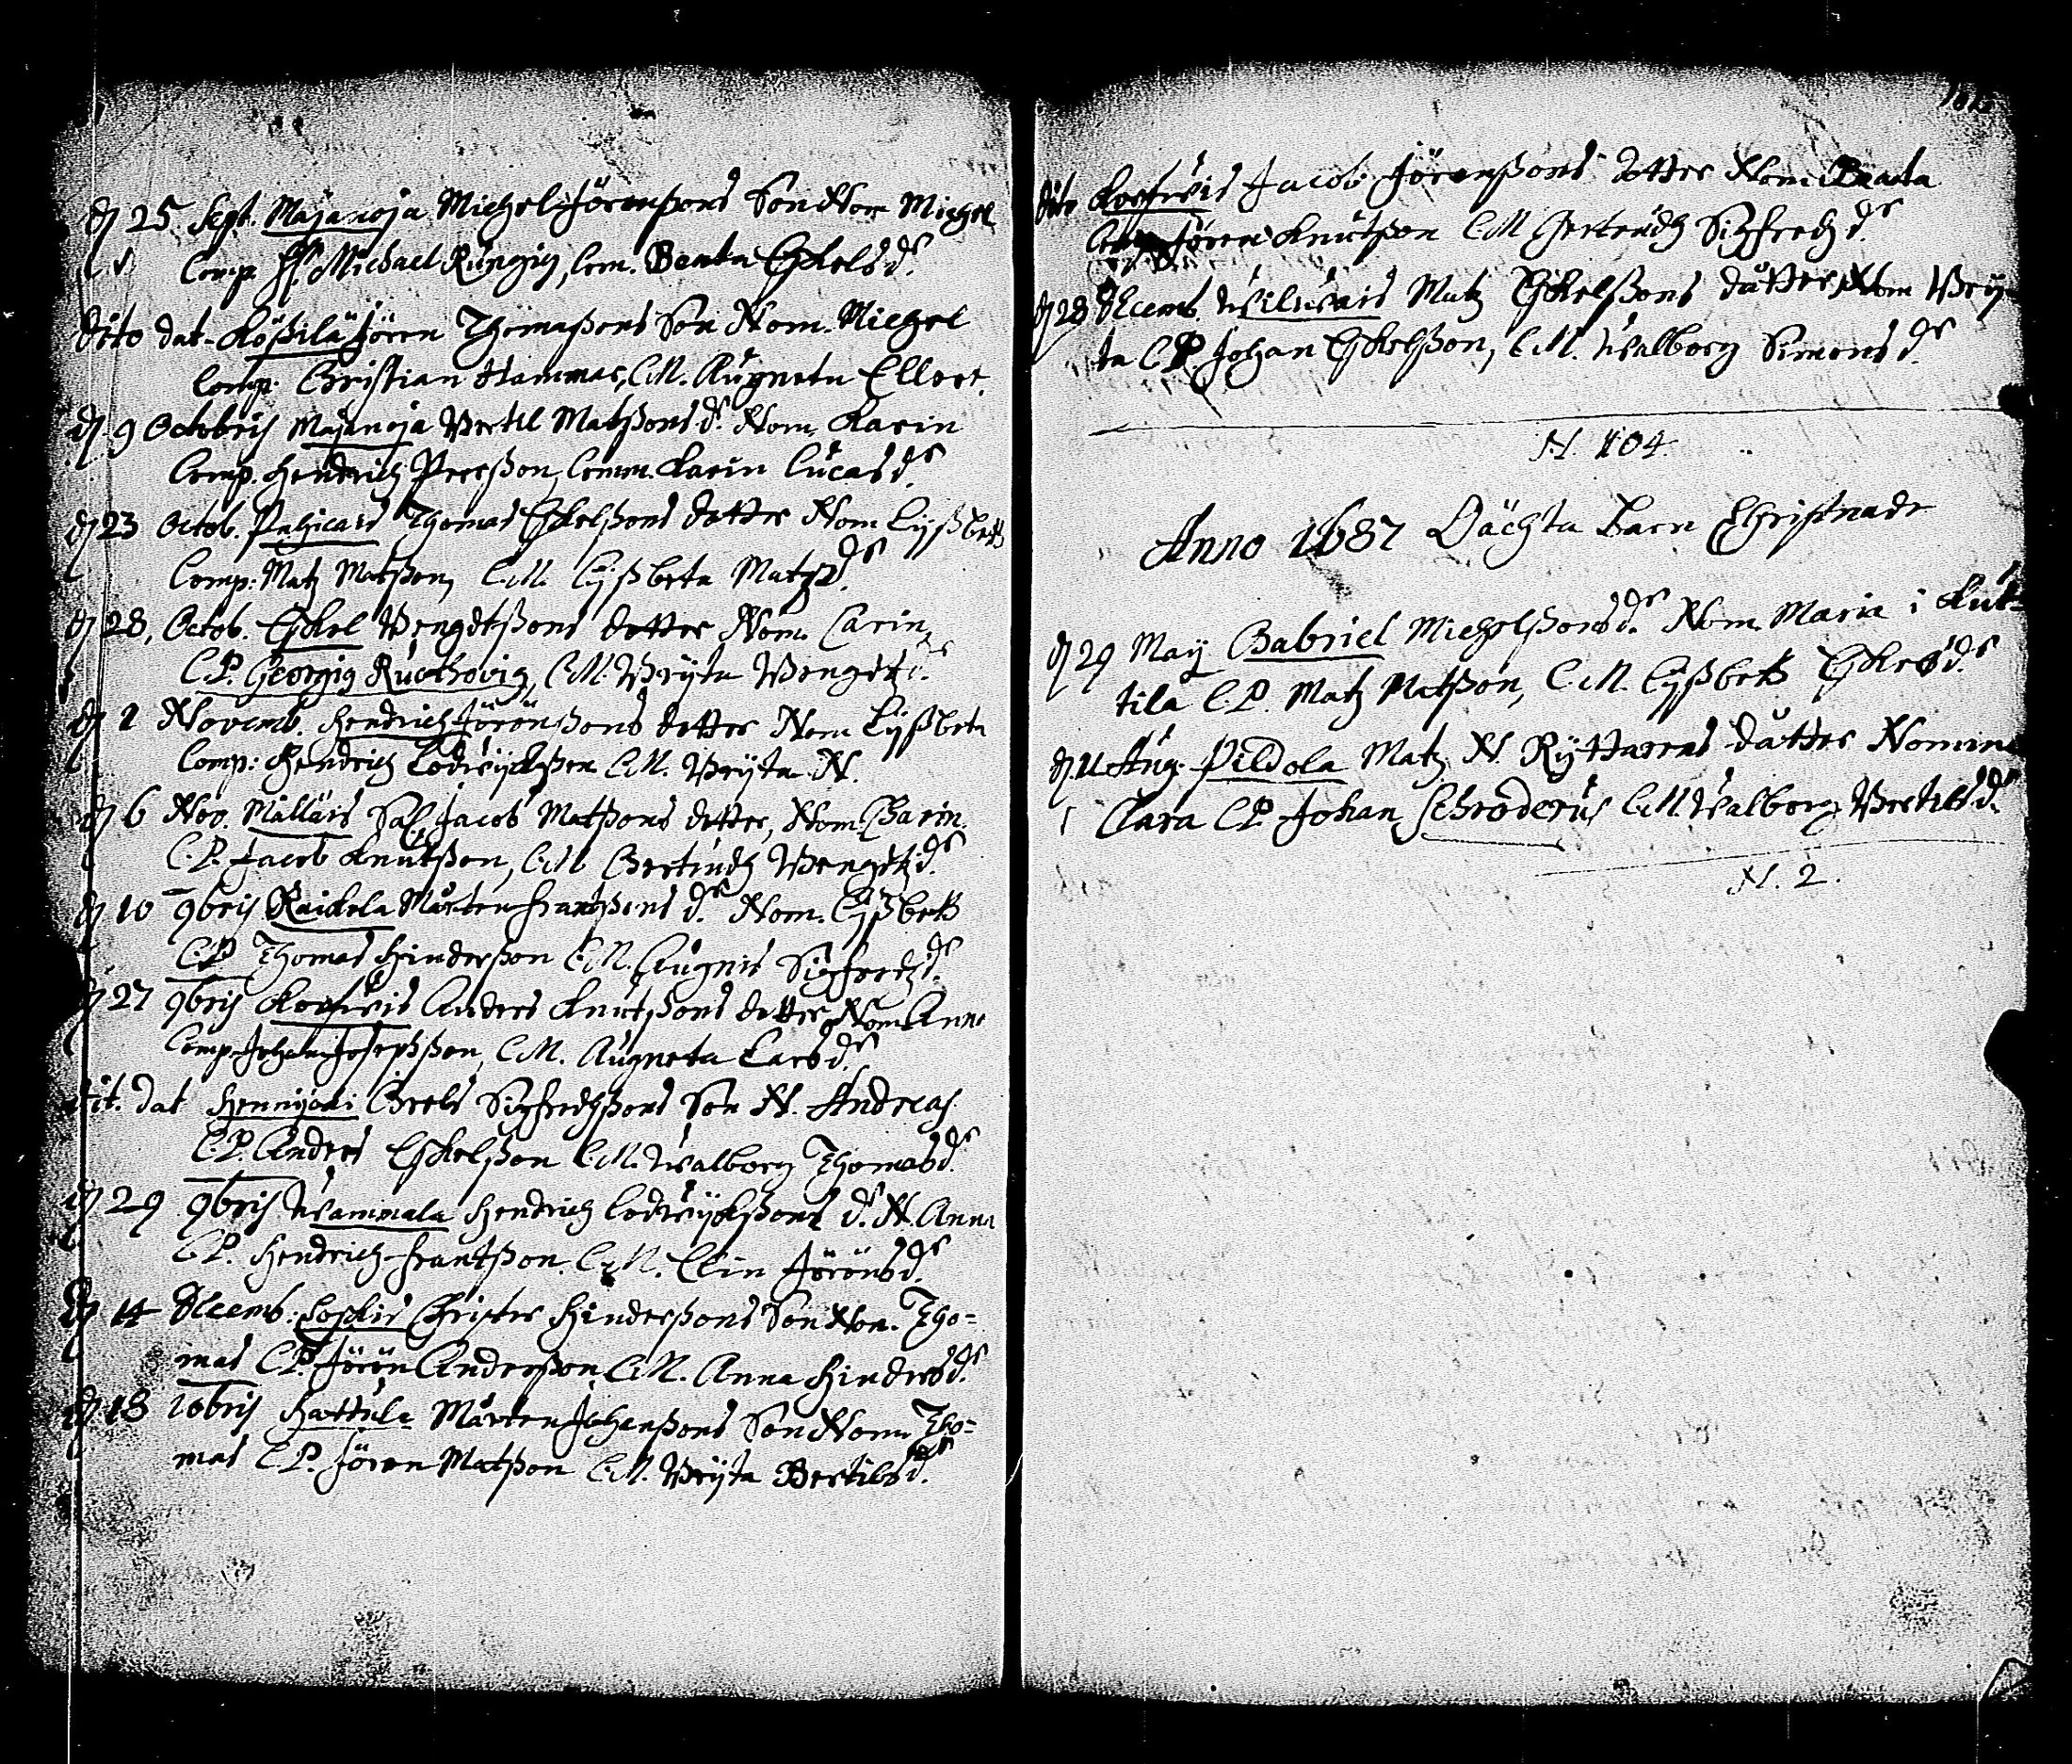 25 Sept. Majanoja Michel Jörenßons Son Nom Michel
Comp. H. Michael Rungig, Com. Beata Eskelsdr.
Dito dat. Kößilä Jören Thomaßons Son Nom. Michel
Comp. Christian Hammar, C.M. Augneta Ellert.
9 Octobris Majanoja Bertil Matßons dr. Nom. Karin
Comp. Hendrich Perßon, Comm. Karin Lucasdr.
23 Octob. Pahicais Thomas Eskelßons dotter Nom Lyßbeth
Comp: Matz Matßon, C.M. Lyßbeta Matzdr.
28, Octob. Eskel Bengdtßons dotter Nom. Carin
C.P. Georgig Ruthovig, C.M. Bryta Bengdtzdr.
1 Novemb. Hendrich Jörönßons dotter Nom Lyßbeta
Comp: Hendrich Lodwijckßon C.M. Bryta N.
6 Nov. Mällärs Sal. Jacob Matßons dotter, Nom. Charin.
C.P. Jacob Knutßon, C.M. Gertrudh Bengdtzdr.
10 9bris Raickela Mårten Frantßons dr. Nom. Lyßbeth
C.P. Thomas Hinderßon C.M. Augnis Sigfredzdr.
27 9bris Korfwis Anders Knutßons dotter Nom Anna
Comp. Johan Josepßon, C.M. Augneta Larsdr.
Dit. dat Hennijoki Grels Sigfredhßons Son N. Andreas
C.P. Anders Eskelßon C.M. Walborg Thomasdr.
29 9bris Wammala Hendrich Lodwijckßons dr. N. Anna
C.P. Hendrich Frantßon. C.M. Elin Jörönsdr.
14 Decemb. Coskis Christer Hinderßons Son Nom. Tho=
mas C.P. Jörön Anderßon, C.M. Anna Hindersdr.
18 10bris Hattula Mårten Johanßons Son Nom. Tho=
mas C.P. Jören Matßon C.M. Bryta Bertilsdr.
Dito Korfwis Jacob Jörenßons dotter Nom. Beata
Jören Knutßon C.M. Gertrudh Sigfredzdr.
28 Decemb. Wilukais Matz Eskelßons dåtter, Nom Bry
ta C.P. Johan Eskelßon, C.M. Walborg Simonsdr.
N. 104.
Anno 1687 Oächta Barn Christnade
29 May Gabriel Michelßonsdr. Nom. Maria i Kut=
tila C.P. Matz Matßon, C.M. Lyßbeth Eskelsdr.
11 Aug. Pildola Matz N. Ryttarens dåtter Nomine
Clara C.P. Johan Schroderus C.M. Walborg Bertilsdr.
N. 2.